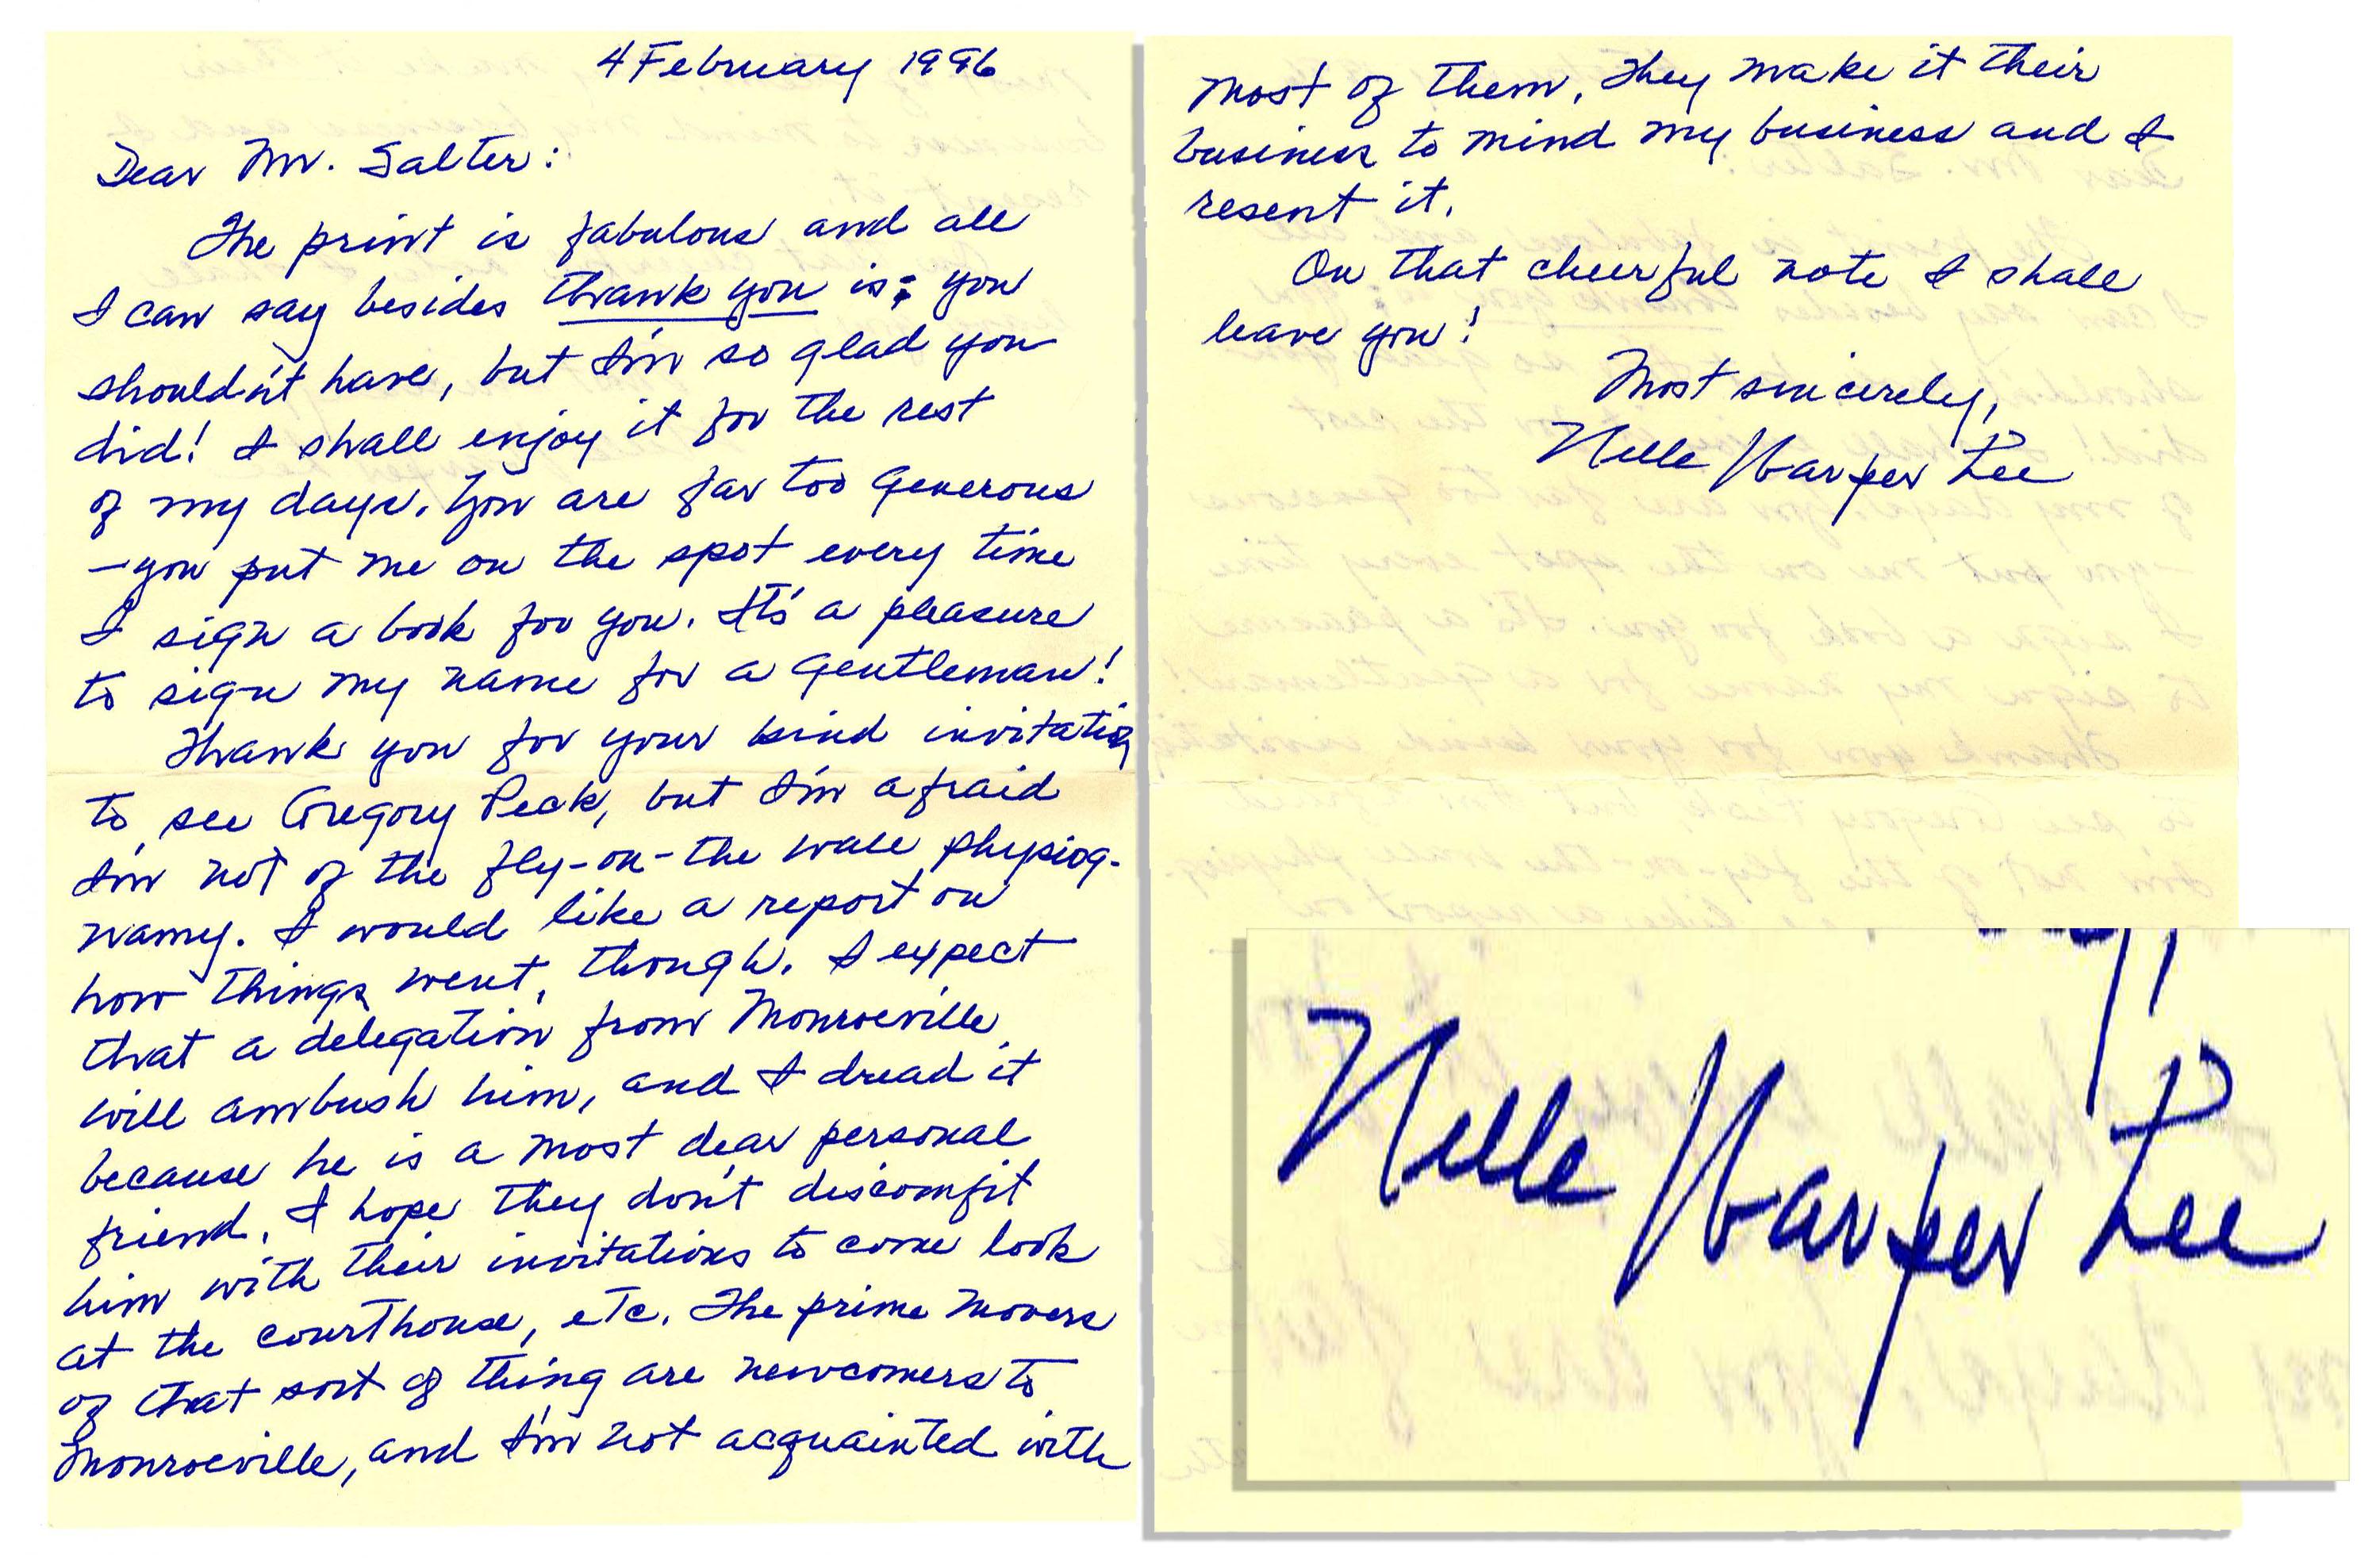 4 February 1996
Dear Mr. Salter:
The print is fabulous and all
I can say besides thank you is: you
shouldn't have, but I'm so glad you
did! I shall enjoy it for the rest
of my days. You are far too generous
—you put me on the spot every time
I sign a book for you. It's a pleasure
to sign my name for a gentleman!
Thank you for your kind invitation
to see Gregory Peck, but I'm afraid
I'm not of the fly-on-the wall physiog-
namy. I would like a report on
how things went, though. I expect
that a delegation from Monroeville
will ambush him, and I dread it
because he is a most dear personal
friend. I hope they don't discomfit
him with their invitations to come look
at the courthouse, etc. The prime movers
of that sort of thing are newcomers to
Monroeville, and I'm not acquainted with
most of them. They make it their
business to mind my business and I
resent it.
On that cheerful note I shall
leave you!
Most sincerely,
Nelle Harper Lee
Nelle Harper Lee